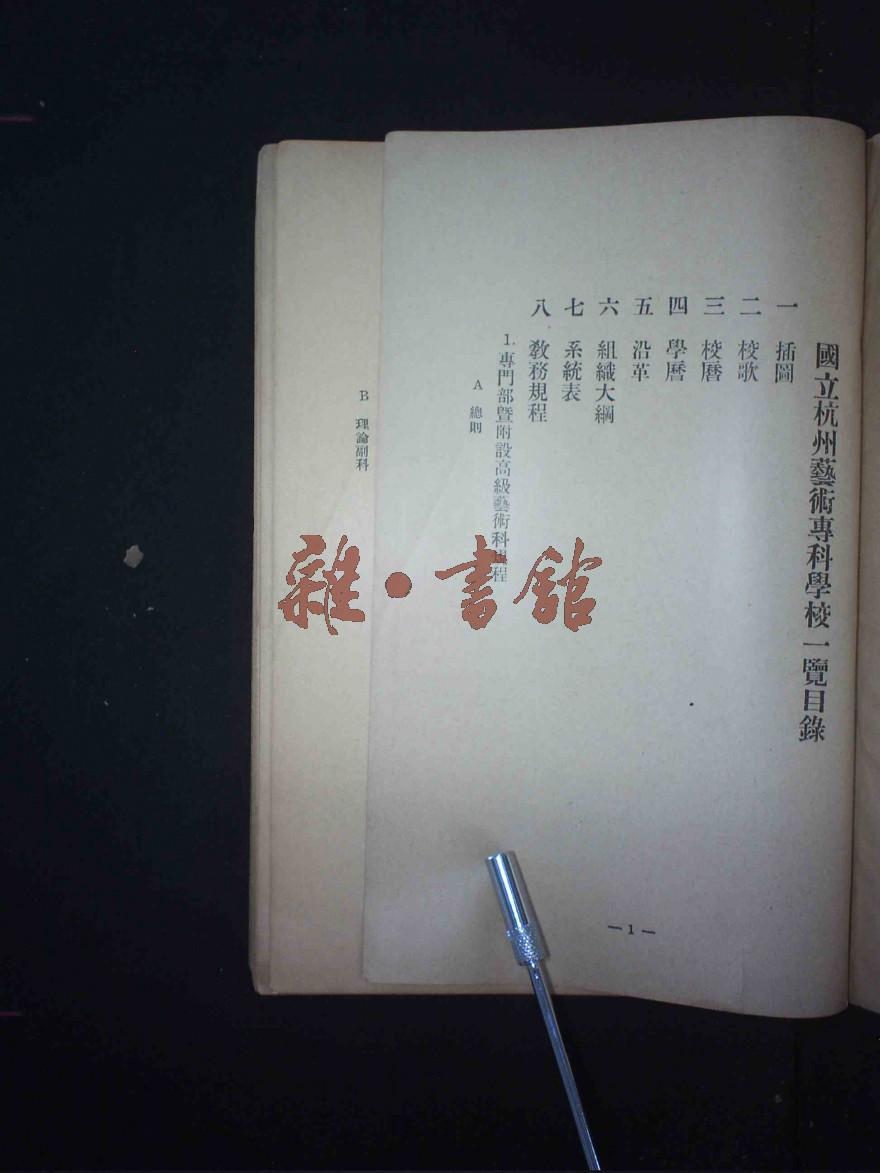 國立杭州藝術專科學校一覽目錄
一 插圖
二 校歌
三 校曆
四 學曆
五 沿革
六 組織大綱
七 系統表
八 敎務規程
1. 專門部暨附設高級藝術科規程
A 總則
B 理論副科
—1—
雜•書館